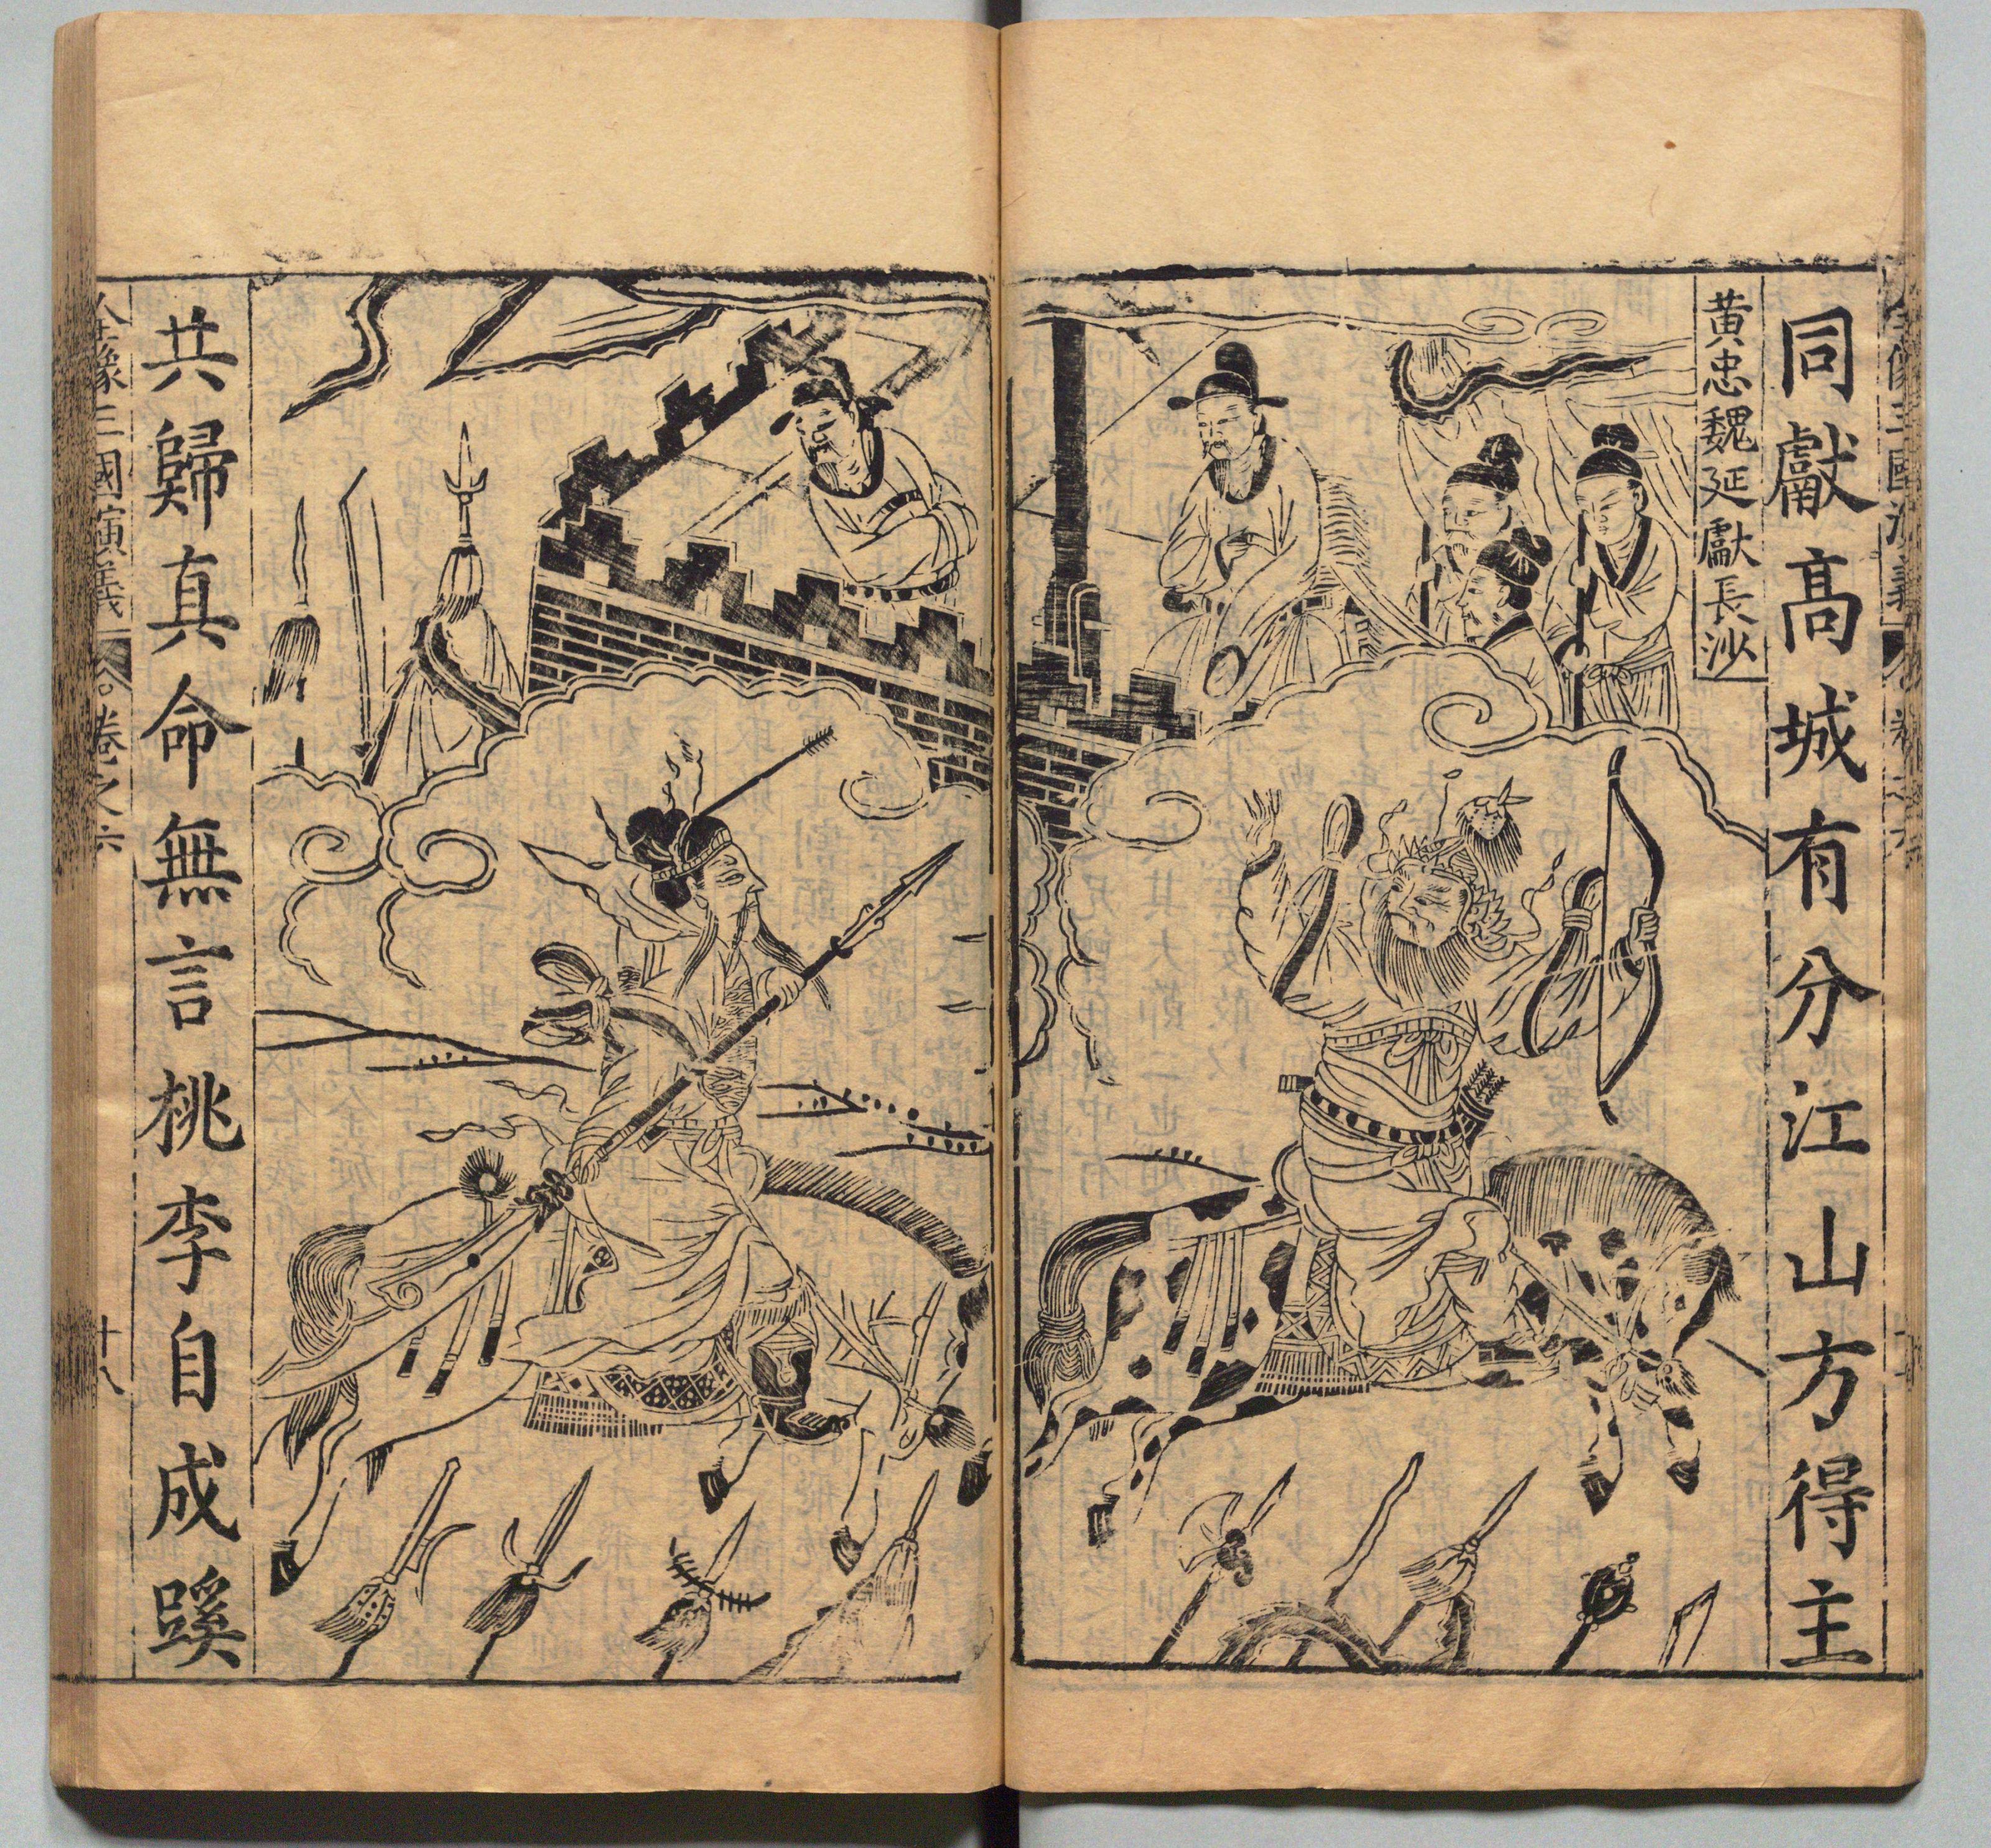 同獻高城有分江山方得主
黃忠魏延獻長沙
共歸真命無言桃李自成蹊
全像三國演義
卷之六
十八